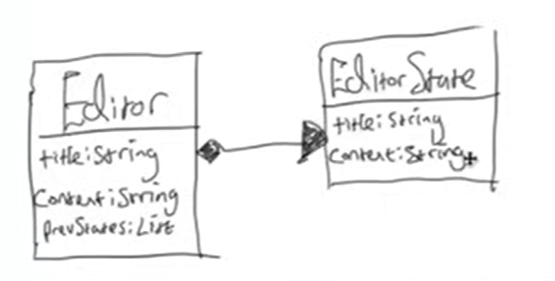 Editor
title:String
Content:String
prevStates:List
EditorState
title:String
Content:String